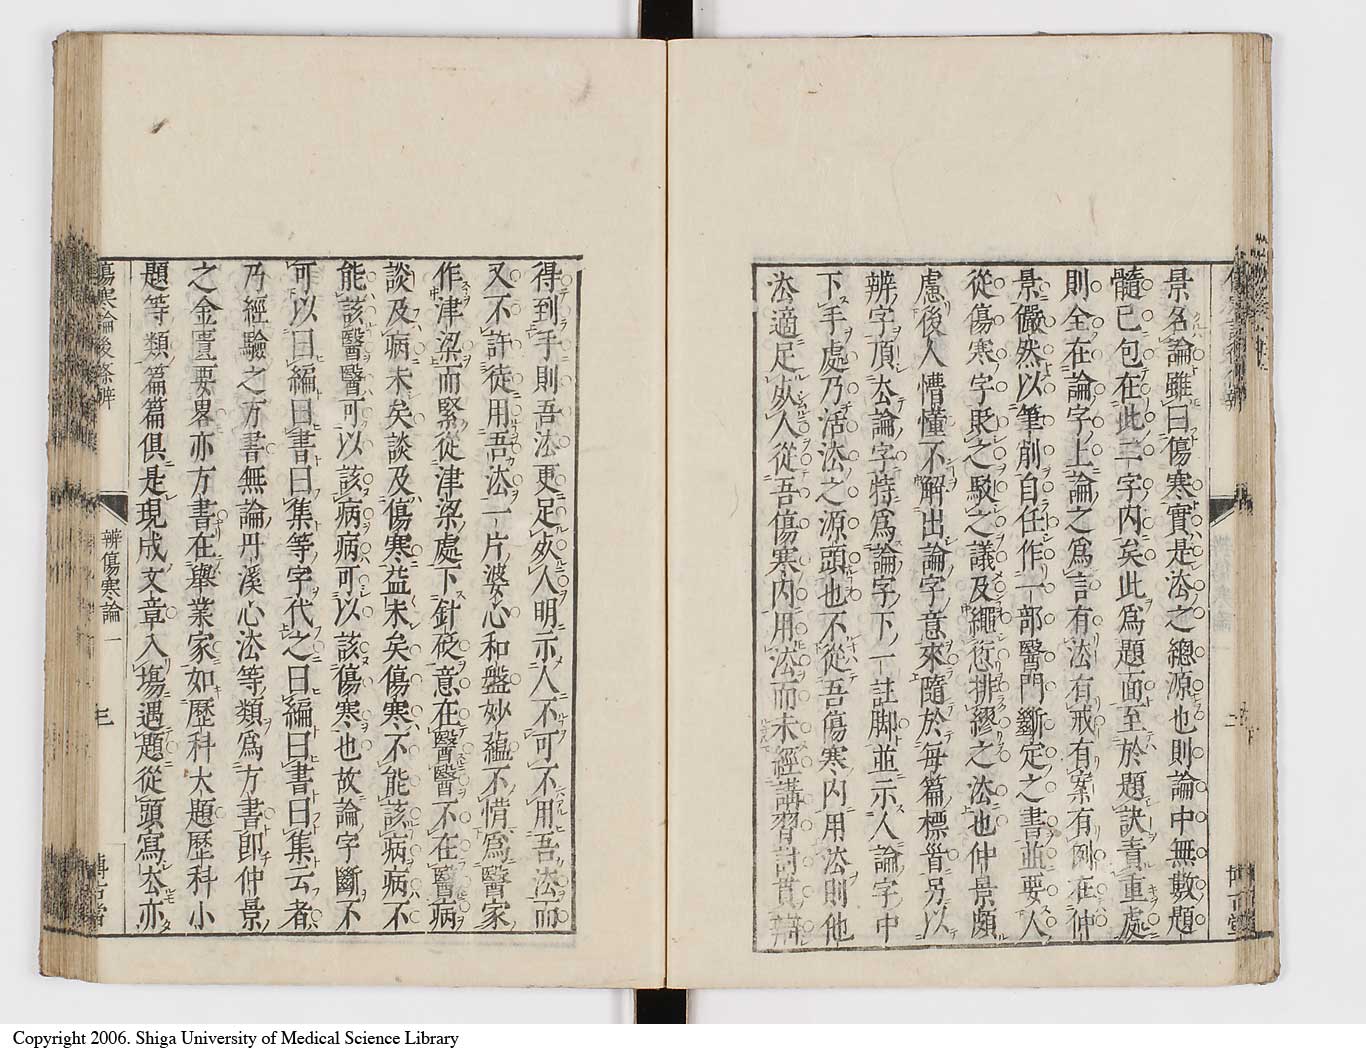 景名論雖曰傷寒實是法之總源也則論中無數題
髓已包在此三字內矣此爲題面至於題訣責重處
則全在論字上論之爲言有法有戒有案有例在仲
景儼然以筆削自任作一部醫門斷定之書並要人
從傷寒字敗之駁之議及繩愆排繆之法也仲景頗
慮後人懵懂不解出論字意來隨於每篇標首另以
辨字頂厺論字特爲論字下一註脚並示人論字中
下手處乃活法之源頭也不從吾傷寒內用法則他
法適足以人從吾傷寒內用法而未經講習討貫辨
得到手則吾法更足以人明示人不可不用吾法而
又不許徒用吾法一片婆心和盤妙蘊不惜爲醫家
作津梁而緊從津梁處下針砭意在醫醫不在醫病
談及病未矣談及傷寒益未矣傷寒不能該病病不
能該醫醫可以該病病可以該傷寒也故論字斷不
可以曰編曰書曰集等字代之曰編曰書曰集云者
乃經驗之方書無論丹溪心法等類爲方書即仲景
之金匱要畧亦方書在舉業家如歷科大題歷科小
題等類篇篇俱是現成文章入塲遇題從頭寫厺亦
傷寒論後條辨
辨傷寒論一
三
博古堂
Copyright 2006. Shiga University of Medical Science Library